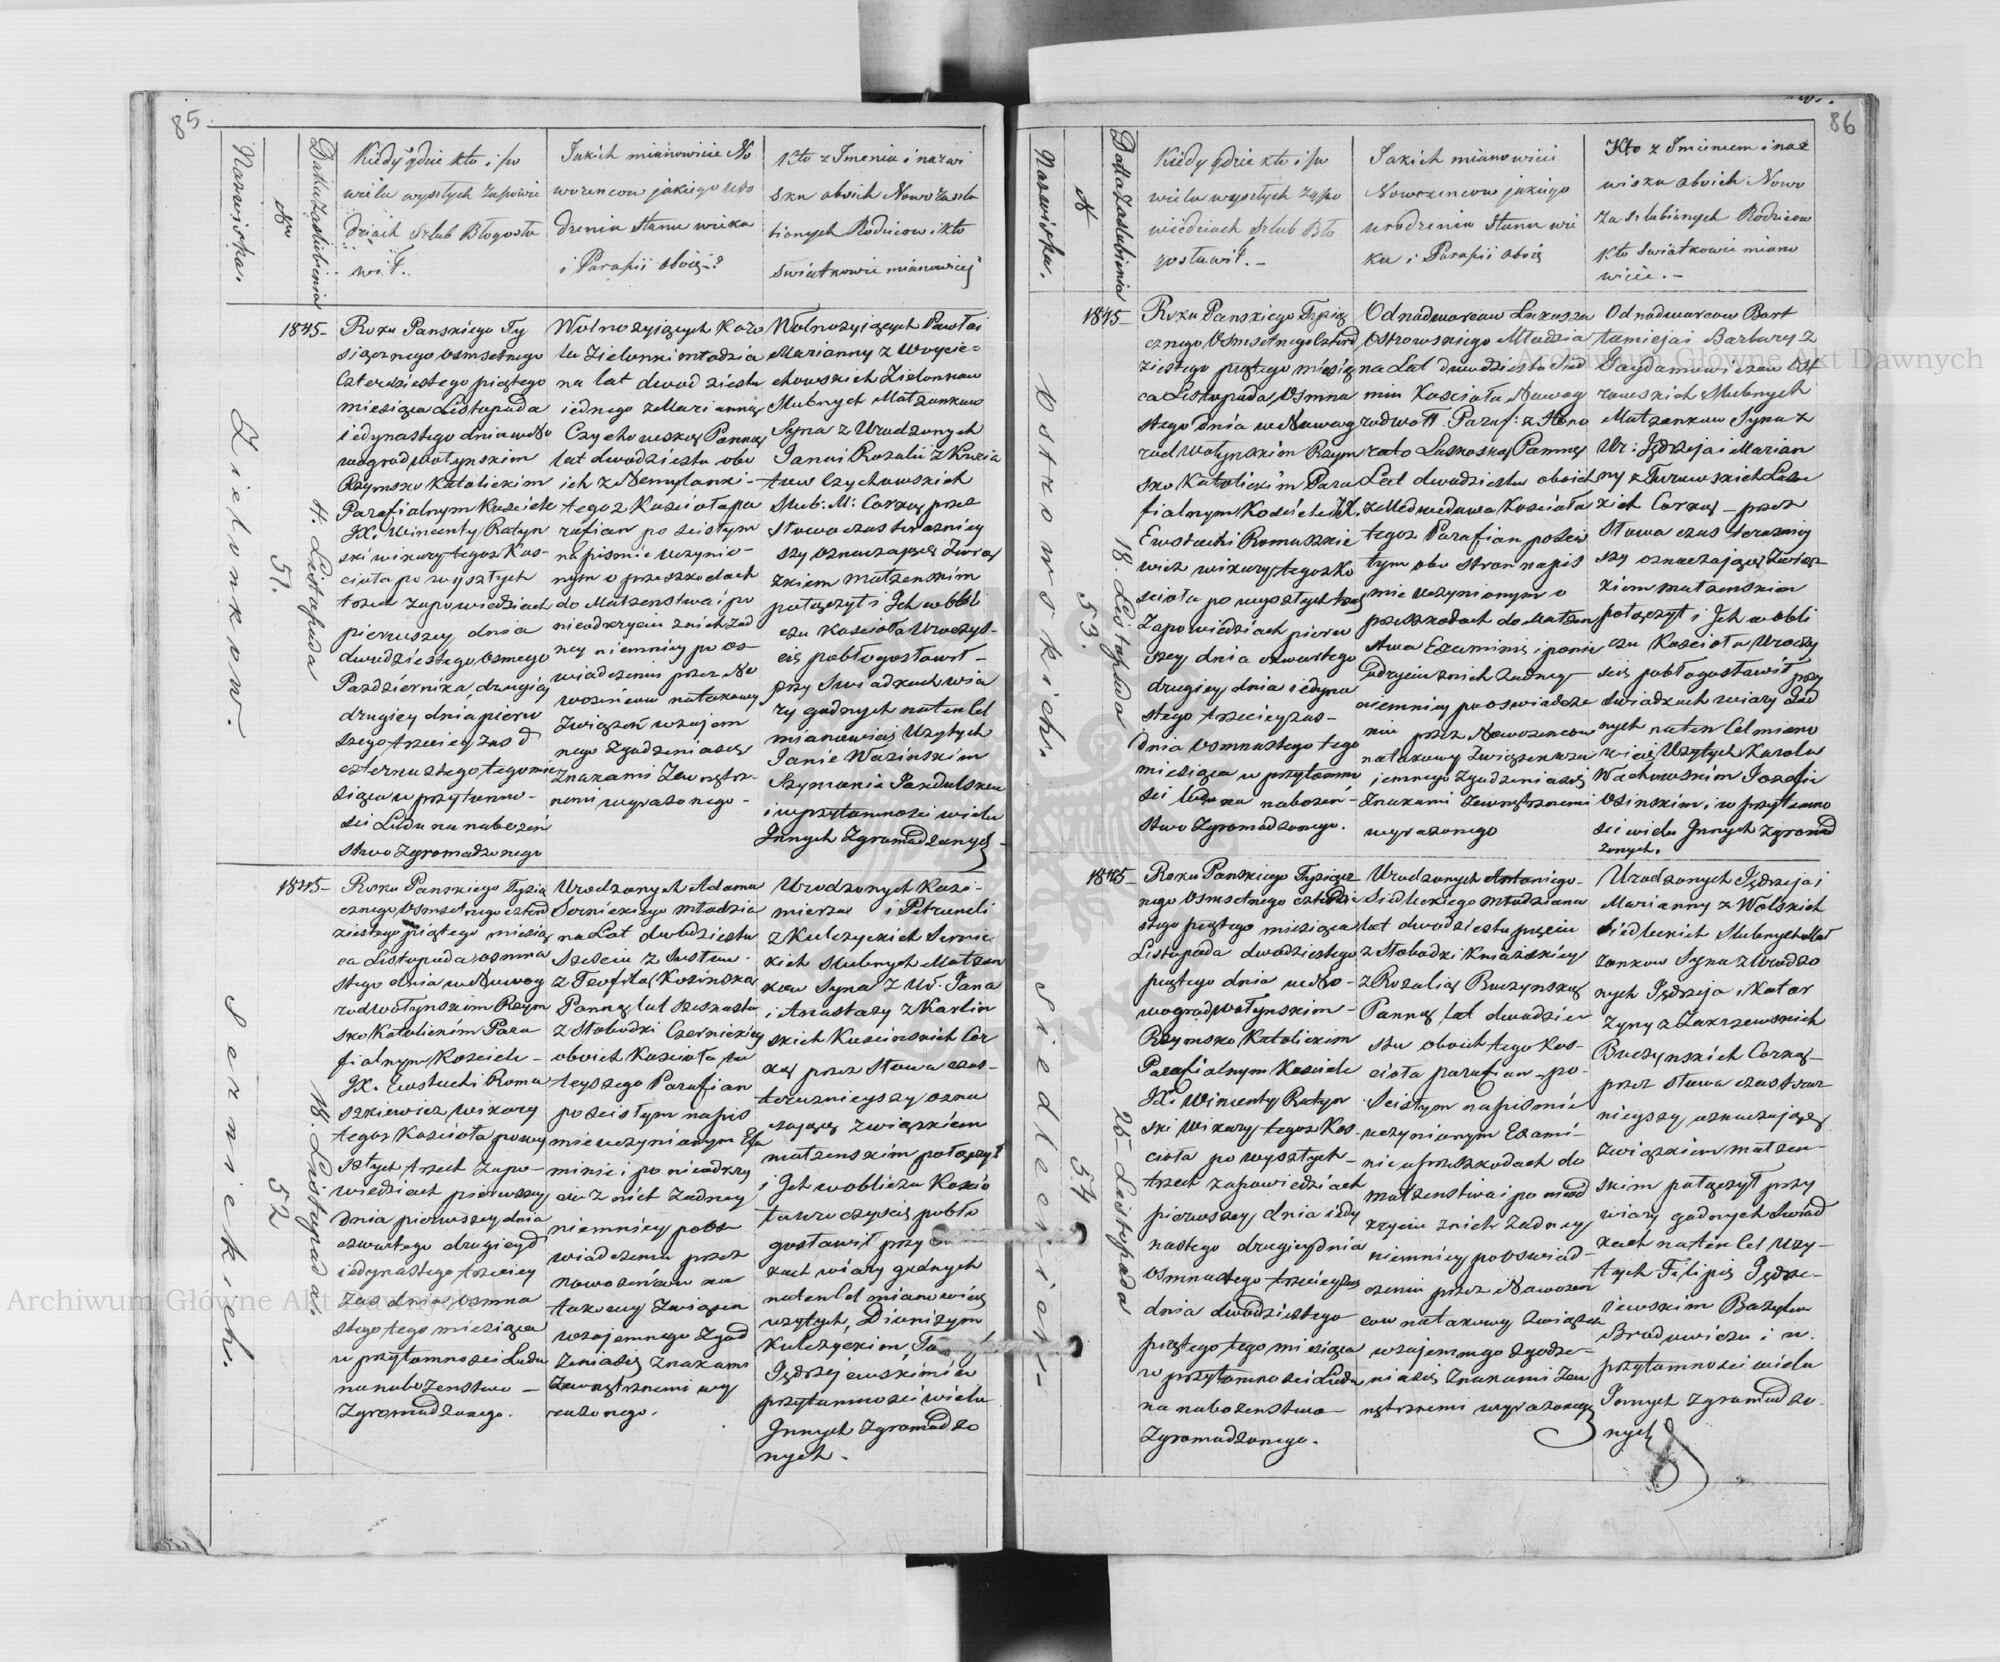 85
Nazwiska.
Nro
Datta Zaslubienia
Kiedy gdzie kto i po
wielu wyszłych Zapowie
dziach Szlub Błogosła
wił.
Jakich mianowicie No
wożencow jakiego uro
dzenia Stanu wieku
i Parafii oboie?
Kto z Imenia i nazwi
ska oboich Nowo Zaszlu
bionych Rodzicow i kto
Swiatkowie mianowicie
Zielonkow.
51.
4. Listopada
1845
Roku Panskiego Ty
siącznego Osmsetnego
Czterdziestego piątego
miesiąca Listopada
iedynastego dnia w No
wogradwołynskim
Rzymsko Katolickim
Parafialnym Kościele
JX. Wincenty Ratyn
ski wikary tegoż Kos-
cioła po wyszłych
trzech zapowiedziach
pierwszey dnia
dwudziestego Osmego
Pazdziernika, drugiey
drugiey dnia pierw
szego trzeciey zas d
czternastego tego mie
siąca w przytomno-
sci Ludu na nabożeń
stwo Zgromadzonego
Wolnożyjących Karo
la Zielonki młodzia
na lat dwadziestu
iednego z Marianną
Czychowską Panną
lat dwadziestu obo
ich z Nemylanki-
tegoż Kościoła pa
rafian po scisłym
na pismie uczynio-
nym o przeszkodach
do Małżenstwa i po
nieodkryciu z nich żad
ney niemniey po os-
wiadczeniu przez No
wożencow na takowy
Związek wzajem
nego Zgodzenia się
Znakami Zewnętrz-
nemi wyrażonego-
Wolnożyjących Pawła i
Marianny z Woycie=
chowskich Zielonkow
Slubnych Małżonkow
Syna z Urodzonych
Jana i Rozalii z
Czychowskich
Slub: M: Corką przez
Słowa czas terazniey
szy oznaczające Zwią
zkiem małżenskim
połączył i Ich w obli
czu Kościoła Uroczys-
cie pobłogosławił-
przy Swiadkach wia
ry godnych na ten Cel
mianowicie Użytych
Janie Wazinskim
Szymonie
i w przytomnosci wielu
Innych Zgromadzonych
Sernickich.
52
18. Listopada.
1845
Roku Panskiego Tysią
cznego Osmsetnego czterd
ziestego piątego miesią
ca Listopada, osmna
stego dnia w Nowog
rodwołynskim Rzym
sko Katolickim Para
fialnym Kosciele-
JX. Eustachi Roma
szkiewicz Wikary
tegoż Kościoła po wy
szłych trzech zapo-
wiedziach pierwszey
dnia pierwszey dnia
czwartego drugiey d
iedynastego trzeciey
zas dnia osmna
stego tego miesiąca
w przytomnosci Ludu
na nabożenstwo-
Zgromadzonego.
Urodzonych Adama
Sernickiego młodzia
na Lat dwudziestu
Szesciu z Susłow.
z Teofilą Kosinską
Panną lat szesnastu
z Słobodki Czernickiey
oboich Kościoła tu
teyszego Parafian
po scisłym na pis
mie uczynionym Exa
minie i po nieodkry
ciu z nich żadney
niemniey po os-
wiadczeniu przez
nowożencow na
takowy Związek
wzajemnego Zgod
zenia się Znakami
Zewnętrznemi wy
rażonego.
Urodzonych Kazi-
mierza i Petroneli
z Kulczyckich Sernic
kich Slubnych Małżon
kow Syna z Ur. Jana
i Anastazy z Karlin
skich Kosinskich Cor
ką przez Słowa czas-
terazniejszy ozna
czające związkiem
małżenskim połączył
i Ich w obliczu Koscio
ła uroczyscie pobło
gosławił przy
kach wiary godnych
na ten Cel mianowicie
użytych, Dionizym
Kulczyckim,
Jędrzejewskim i w
przytomnosci wielu
Innych Zgromadzo
nych-
86
Nazwiska.
N
Datta Zaslubienia
Kiedy gdzie kto i po
wielu wyszłych Zapo
wiedziach Szlub Bło
gosławił.-
Jakich mianowicie
Nowożencow jakiego
urodzenia Stanu wie
ku i Parafii oboie
Kto z Imieniem i naz
wiska oboich Nowo
Zaszlubionych Rodzicow
Kto Swiatkowie miano
wicie.-
Ostrowskich.
53.
18. Listopada
1845
Roku Panskiego Tysią
cznego Osmsetnego Czterd
ziestego piątego miesią
ca Listopada, Osmna
stego dnia w Nowog
rodWołynskim Rzym
sko Katolickim Para
fialnym Kościele JX.
Eustachi Romaszkie
wicz wikary tegoż Ko
scioła po wyszłych trzech
Zapowiedziach pierw
szey dnia czwartego
drugiey dnia iedyna
stego trzeciey zas-
dnia Osmnastego tego
miesiąca w przytomno
sci Ludu na nabożeń-
stwo Zgromadzonego.
Odnodworcow Lukasza
Ostrowskiego Młodzia
na Lat dwudziestu Sied
miu Kościoła Nowog
rodwoł: Paraf: z Hono
ratą Laskoską Panną
Lat dwudziestu oboich
z Miedwedowa Kościoła
tegoż Parafian po scis
łym obu stron na pis
mie uczynionym o
przeszkodach do Małżen
stwa Examinie i ponie
odkryciu z nich żadney
niemniey po oswiadcze
niu przez Nowożencow
na takowy Związek wza
jemnego Zgodzenia się
Znakami Zewnętrznemi
wyrażonego
Odnodworcow Bart
łomieja i Barbary z
Gaydamowiczow Ost
rowskich Slubnych
Małżonkow Syna z
Ur: Jędrzeja i Marian
ny z Turowskich Lasko
kich Corką- przez
Słowa czas terazniey
szy oznaczające Związ
kiem małżenskim
połączył i Ich w obli
czu Kościoła Uroczy
scie pobłogosławił przy
Swiadkach wiary God
nych na ten Cel miano
wicie Użytych Karolu
Wachowskim Jozefie
Osinskim i w przytomno
sci wielu Innych Zgromad
zonych.
Siedleckich.
54
25 Listopada
1845
Roku Panskiego Tysiącz
nego Osmsetnego czterdzie
stego piątego miesiąca
Listopada dwudziestego
piątego dnia w No-
wogradwołynskim-
Rzymsko Katolickim
Parafialnym Kościele
JX. Wincenty Ratyn
ski Wikary tegoż Kos-
cioła po wyszłych-
trzech zapowiedziach
pierwszey, dnia iedy
nastego drugiey dnia
Osmnastego trzeciey zas
dnia dwudziestego
piątego tego miesiąca
w przytomnosci Ludu
na nabożenstwo-
Zgromadzonego.
Urodzonych Antoniego-
Siedleckiego młodziana
lat dwudziestu pięciu
z Słobodki Kniażskiey
z Rozalią Buczynską
Panną lat dwudzie
stu oboich tego Kos-
cioła parafian-po-
Scisłym na pismie
uczynionym Exami-
nie o przeszkodach do
małżenstwa i po nieod
kryciu z nich żadney
niemniey po oswiad-
czeniu przez Nowożen
cow na takowy Związek
wzajemnego Zgodze-
nia się Znakami Zew
nętrznemi wyrażonego
Urodzonych Jędrzeja i
Marianny z Wolskich
Siedleckich Slubnych Mał
żonkow Syna z Urodzo
nych Jędrzeja i Katar
zyny z Zakrzewskich
Buczynskich Corką-
przez słowa czas teraz
nieyszy, oznaczające
związkiem małżen-
skim połączył przy
wiary godnych Swiad
kach na ten Cel Uży-
tych Filipie Jędrze-
jewskim Bazylim
Brodowiczu i w.
przytomnosci wielu
Innych Zgromadzo.
nych
Archiwum Główne Akt Dawnych
Archiwum Główne Akt Dawnych